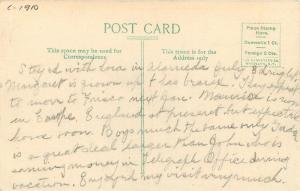 c-1910
POST CARD
Place Stamp Here.
Domestic 1 Ct.
Foreign 2 Cts.
This space may be used for Correspondence
This space is for the Address only
Stayed with Cora in Alameda only 1 night
Margaret is grown up & has braids. They expect
to move to Frisco next Jan. Maurice is now
in Europe. England at present but expects to
home soon. Boys much the same only Gady
is a great deal larger than John who is
earning money in Telegraph Office during
vacation. Enjoyed my visit very much.